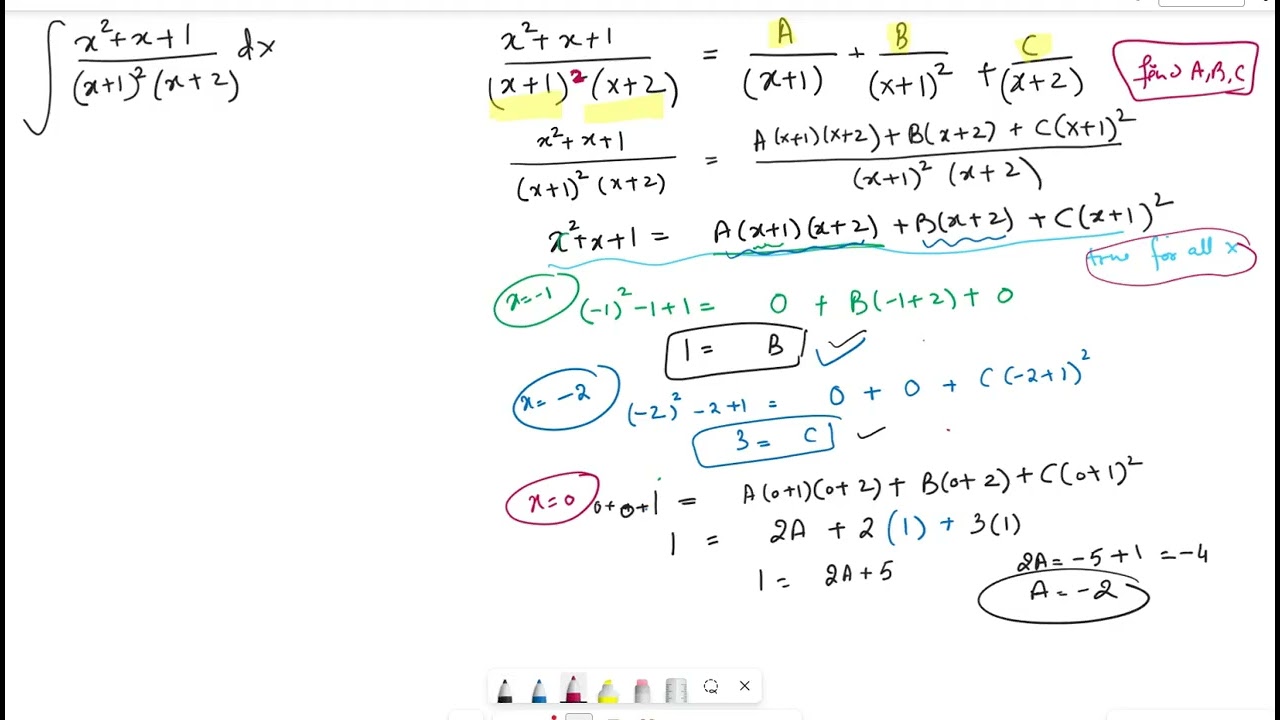 ∫ x²+x+1 / (x+1)²(x+2) dx
x²+x+1 / (x+1)²(x+2) = A/(x+1) + B/(x+1)² + C/(x+2)
find A,B,C
x²+x+1 / (x+1)²(x+2) = A(x+1)(x+2)+B(x+2)+C(x+1)² / (x+1)²(x+2)
x²+x+1 = A(x+1)(x+2)+B(x+2)+C(x+1)²
true for all x
x=-1 (-1)²-1+1= 0 + B(-1+2)+0
1= B
x=-2 (-2)²-2+1= 0+0+C(-2+1)²
3= C
x=0 0+0+1 = A(0+1)(0+2)+B(0+2)+C(0+1)²
1 = 2A+2(1)+3(1)
1= 2A+5
2A=-5+1=-4
A=-2